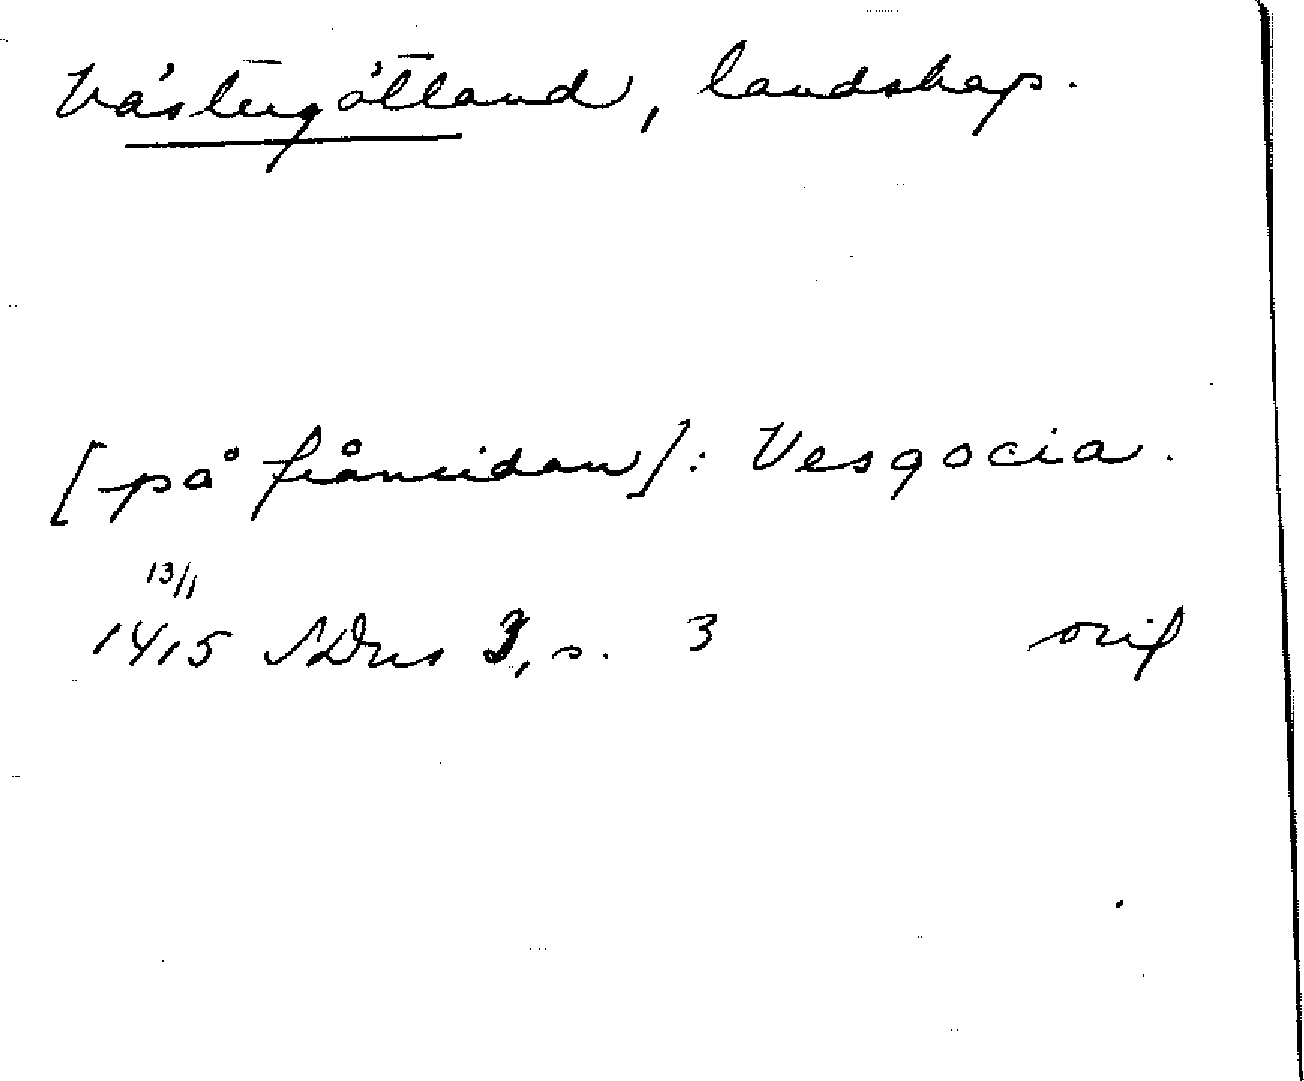 Västergötland, landskap.
[på frånsidan]: Vesgocia.
13/1
1415 SDns 3, s. 3 orig